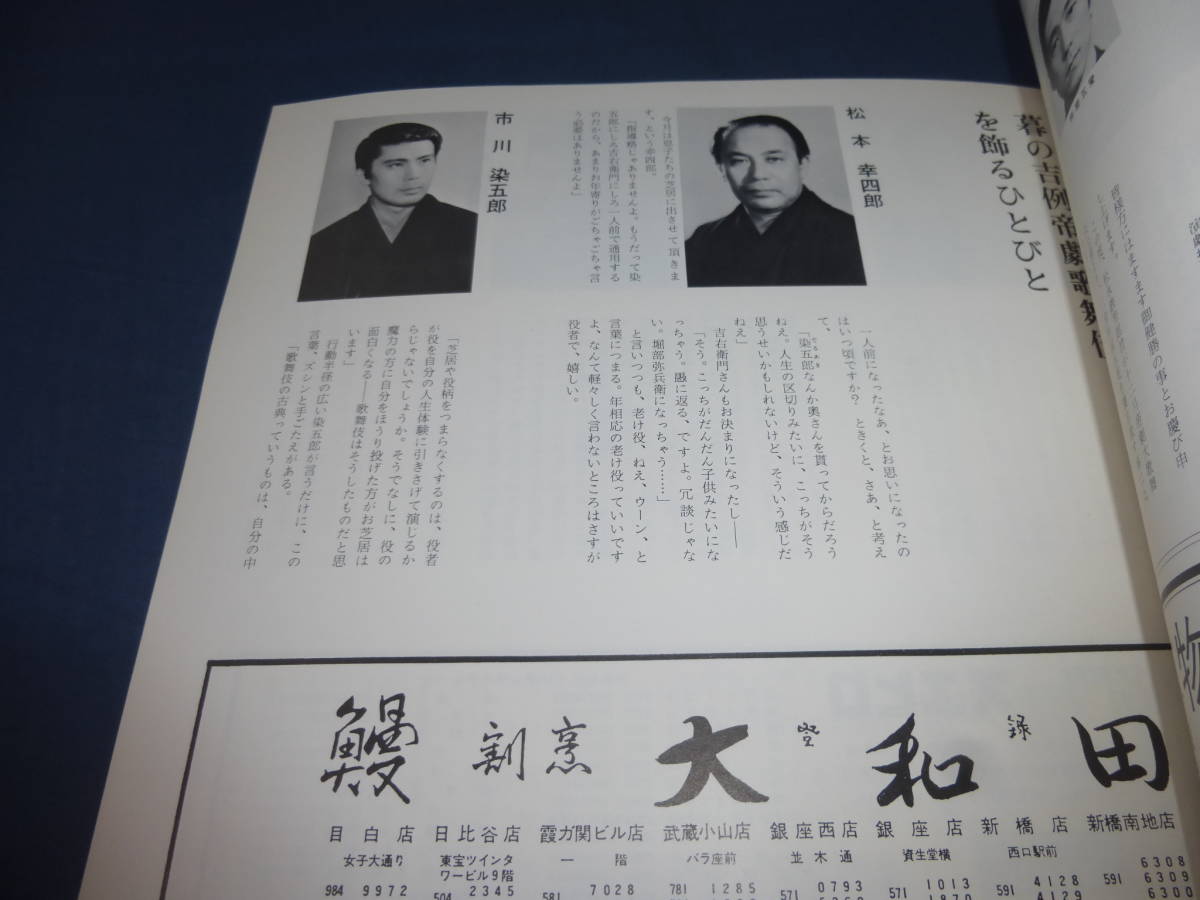 暮の吉例帝劇歌舞伎
を飾るひとびと
松本 幸四郎
今月は息子たちの芝居に出させて頂きま
す、という幸四郎。
「指導格じゃありませんよ。もうだって染
五郎にしろ吉右衛門にしろ一人前で通用する
のだから、あまりお年寄りがごちゃごちゃ言
う必要はありませんよ」
一人前になったなあ、とお思いになったの
はいつ頃ですか？ ときくと、さあ、と考え
て、
「染五郎なんか奥さんを貰ってからだろう
ねえ。人生の区切りみたいに、こっちがそう
思うせいかもしれないけど、そういう感じだ
ねえ」
吉右衛門さんもお決まりになったし――
「そう。こっちがだんだん子供みたいにな
っちゃう。愚に返る、ですよ。冗談じゃな
い。堀部弥兵衛になっちゃう……」
と言いつつも、老け役、ねえ、ウーン、と
言葉につまる。年相応の老け役っていいです
よ、なんて軽々しく言わないところはさすが
役者で、嬉しい。
市川 染五郎
「芝居や役柄をつまらなくするのは、役者
が役を自分の人生体験に引きさげて演じるか
らじゃないでしょうか。そうでなしに、役の
魔力の方に自分をほうり投げた方がお芝居は
面白くなる――歌舞伎はそうしたものだと思
います」
行動半径の広い染五郎が言うだけに、この
言葉、ズシンと手ごたえがある。
「歌舞伎の古典っていうものは、自分の中
鰻 割烹 大和田
登録
目白店
女子大通り
984 9972
日比谷店
東宝ツインタ
ワービル9階
504 2345
霞ガ関ビル店
一階
581 7028
武蔵小山店
バラ座前
781 1285
銀座西店
並木通
571 0793
銀座店
資生堂横
571 1013
1870
新橋店
西口駅前
591 4128
4129
新橋南地店
591 6308
6309
6310